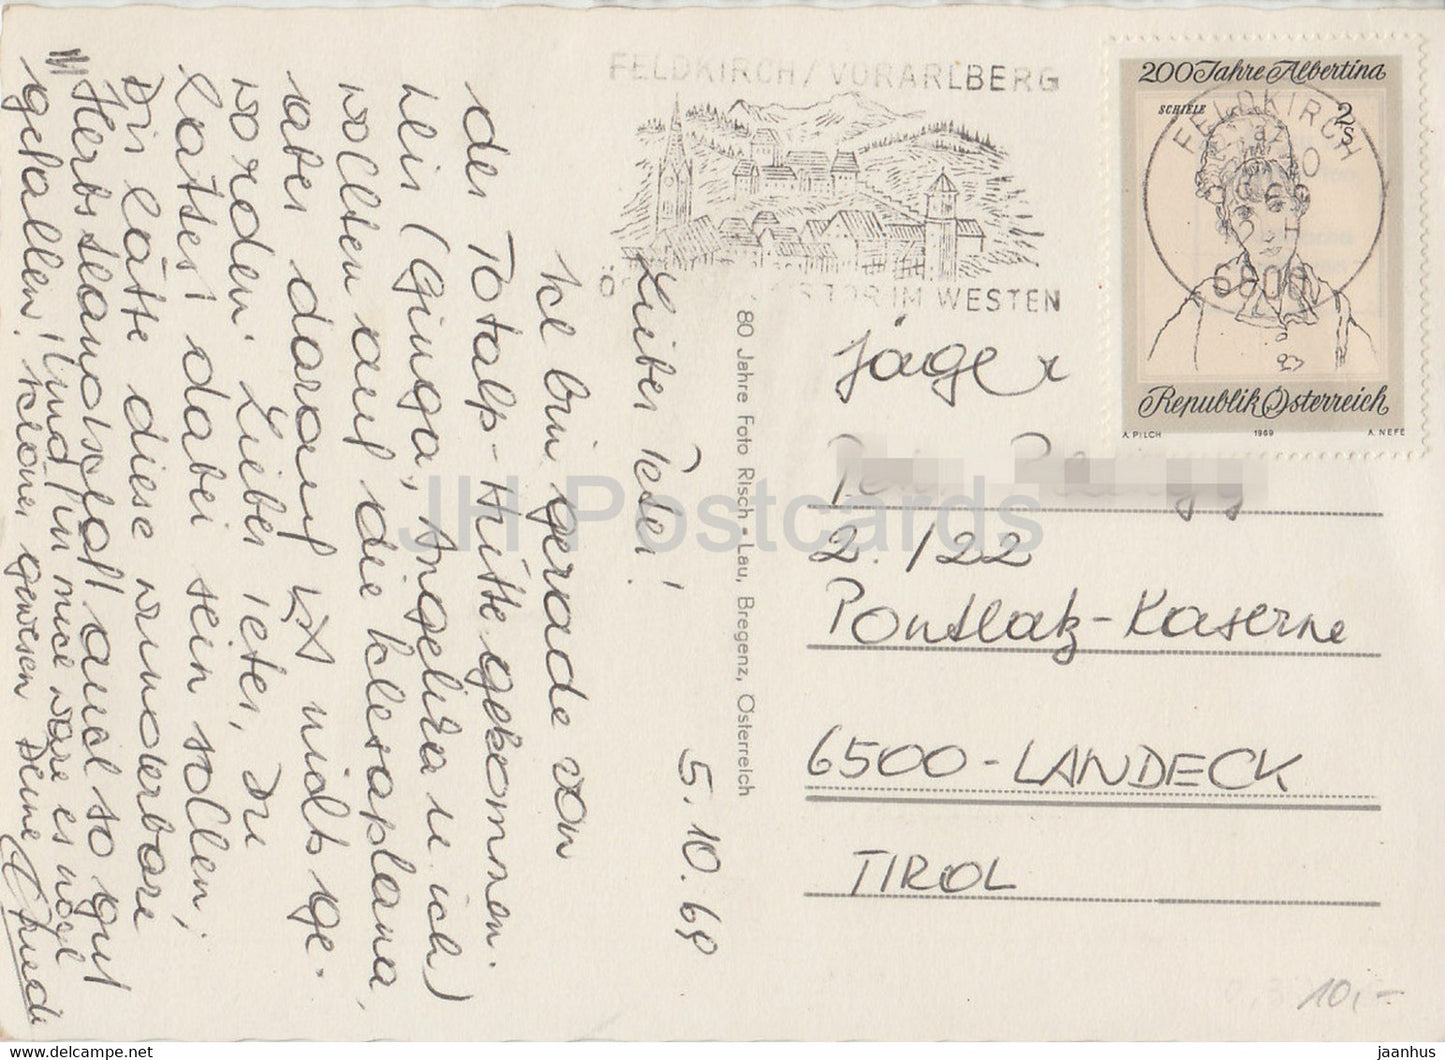 FELDKIRCH/VORARLBERG
TOR IM WESTEN
200 Jahre Albertina
SCHIELE
2s
FELDKIRCH
6800
Republik Österreich
A. PILCH 1969 A. NEFE
5.10.69
Lieber Peter!
Ich bin gerade von
der Totalp-Hütte gekommen.
Wir (Ginga, Angelika u. ich)
wollten auf die Schesaplana,
aber darauf ist nichts ge-
worden. Lieber Peter, Du
hättest dabei sein sollen,
Dir hätte diese wunderbare
Herbstlandschaft auch so gut
gefallen! Und für mich wäre es noch
schöner gewesen Deine
80 Jahre Foto Risch-Lau, Bregenz, Österreich
Jäger
2./22
Pontlatz-Kaserne
6500-LANDECK
TIROL
10,-
JH Postcards
https://jhpostcards.com
jaanhus